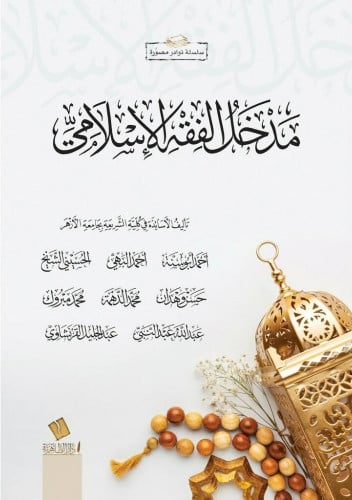 سلسلة نوادر مصورة
مدخل الفقه الإسلامي
تأليف الأساتذة في كلية الشريعة بجامعة الأزهر
أحمد أبو سنة أحمد البهي الحسيني الشيخ
حسن وهدان محمد الدهمة محمد مبروك
عبد الله عبد النبي عبد الجليل القرنشاوي